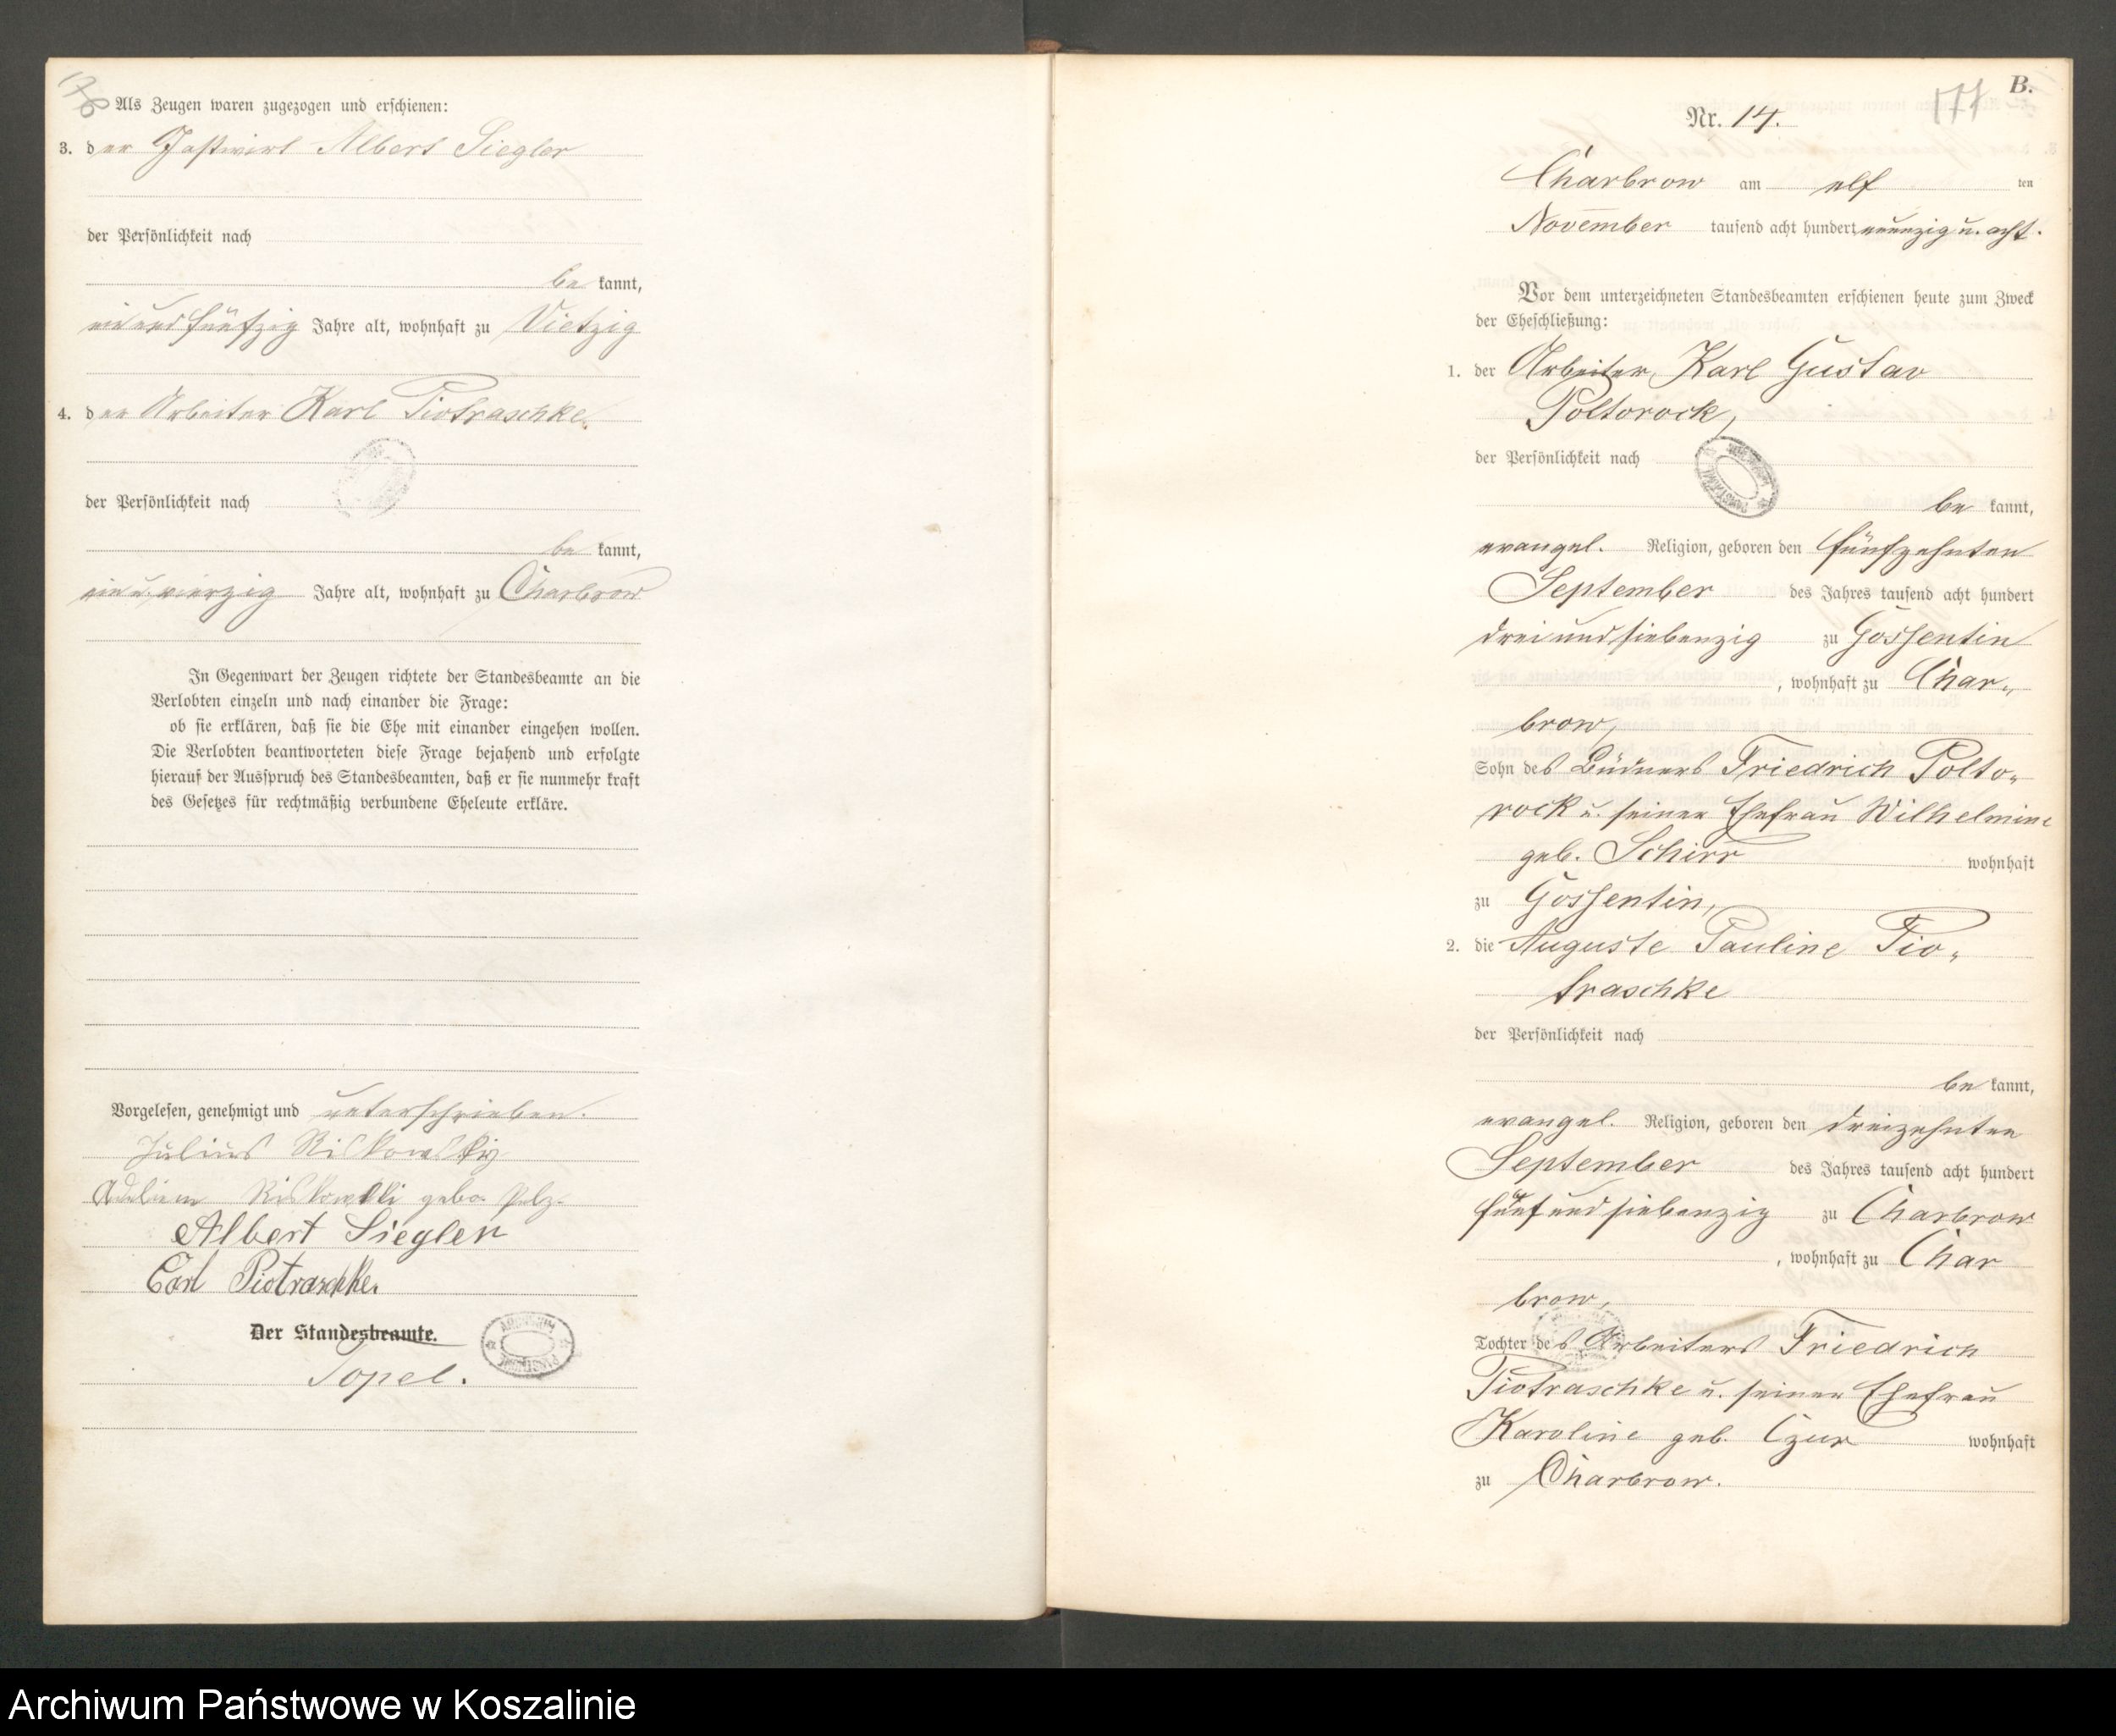 176
Als Zeugen waren zugezogen und erschienen:
3. der Gastwirt Albert Siegler
der Persönlichkeit nach
be kannt,
ein und fünfzig Jahre alt, wohnhaft zu Vietzig
4. der Arbeiter Karl Piotraschke
der Persönlichkeit nach
be kannt,
ein u. vierzig Jahre alt, wohnhaft zu Charbrow
In Gegenwart der Zeugen richtete der Standesbeamte an die
Verlobten einzeln und nach einander die Frage:
ob sie erklären, daß sie die Ehe mit einander eingehen wollen.
Die Verlobten beantworteten diese Frage bejahend und erfolgte
hierauf der Ausspruch des Standesbeamten, daß er sie nunmehr kraft
des Gesetzes für rechtmäßig verbundene Eheleute erkläre.
Vorgelesen, genehmigt und unterschrieben.
Julius
geb. Pelz.
Albert Siegler
Carl Piotraschke.
Der Standesbeamte.
Topel.
B.
177
Nr. 14.
Charbrow am elf ten
November tausend acht hundert neunzig u. acht.
Vor dem unterzeichneten Standesbeamten erschienen heute zum Zweck
der Eheschließung:
1. der Arbeiter Karl Gustav
Poltorock,
der Persönlichkeit nach
be kannt,
evangel. Religion, geboren den fünfzehnten
September des Jahres tausend acht hundert
drei und siebenzig zu Gossentin
, wohnhaft zu Char„
brow,
Sohn des Büdners Friedrich Polto„
rock u. seiner Ehefrau Wilhelmine
geb. Schirr wohnhaft
zu Gossentin,
2. die Auguste Pauline Pio„
traschke
der Persönlichkeit nach
be kannt,
evangel. Religion, geboren den dreizehnten
September des Jahres tausend acht hundert
fünf und siebenzig zu Charbrow
, wohnhaft zu Char
brow,
Tochter des Arbeiters Friedrich
Piotraschke u. seiner Ehefrau
Karoline geb. Czur wohnhaft
zu Charbrow.
Archiwum Państwowe w Koszalinie